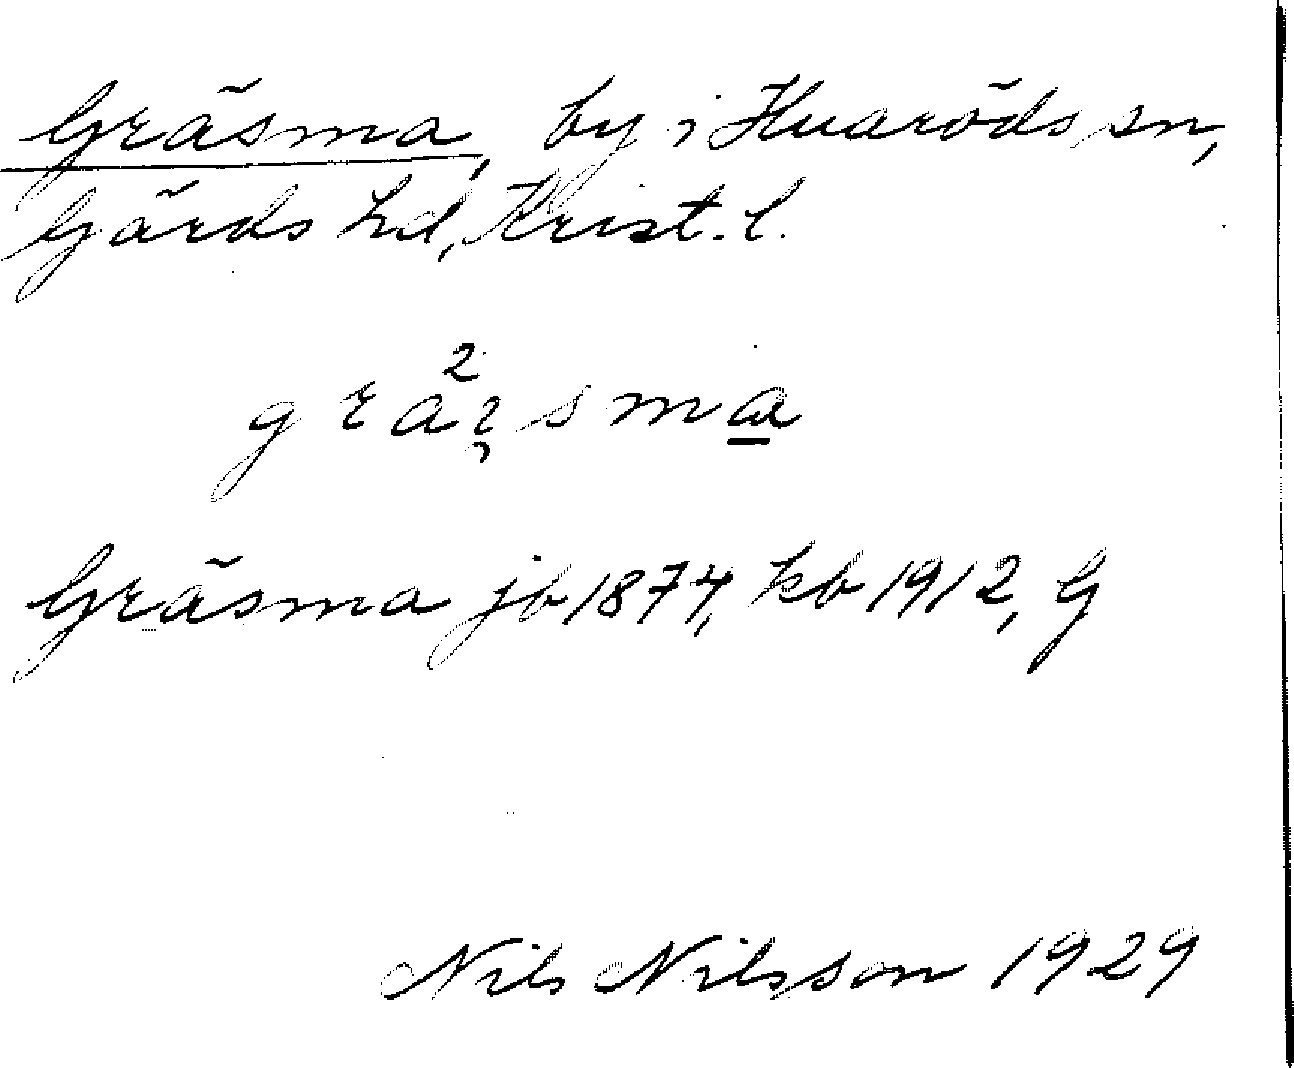 Gräsma, by i Huaröds sn,
Gärds hd, Krist. l.
Gräsma jb 1874, kb 1912, G
Nils Nilsson 1929